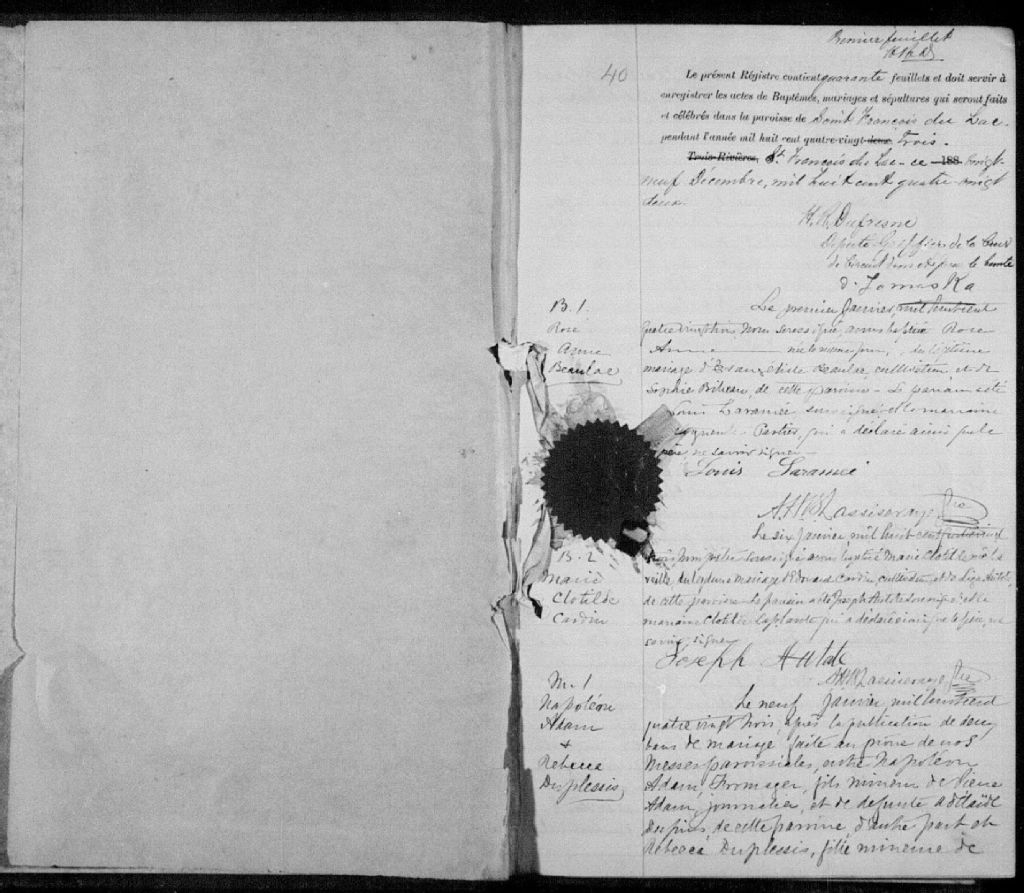 Premier feuillet
40
Le présent Régistre contient quarante feuillets et doit servir à
enregistrer les actes de Baptêmes, mariages et sépultures qui seront faits
et célébrés dans la paroisse de Saint François du Lac
pendant l'année mil huit cent quatre-vingt-deux Trois.
Trois-Rivières, St. François du Lac - ce 188 vingt
neuf Decembre, mil huit cent quatre-vingt
deux.
H. R. Dufresne
Député Greffier de la Cour
de Circuit dans et pour le comté
d'Yamaska
B. 1.
Rose
Anna
Beaulac
Le premier Janvier, mil huit cent
quatre vingt trois, Nous soussigné, avons baptisé Rose
Anna du légitime
mariage d'Evangéliste Beaulac cultivateur et de
Sophie de cette paroisse - Le parrain a été
Louis Laramée, soussigné et la marraine
Parties, qui a déclaré ainsi que le
père, ne savoir signer
Louis Laramée
Ptre
B. 2
Marie
Clotilde
Cardin
Le six Janvier, mil huit cent quatre vingt
trois, Nous prêtre soussigné avons baptisé Marie Clotilde née la
veille, du légitime mariage d'Edouard Cardin, cultivateur, et de
de cette paroisse - Le parrain a été Joseph soussigné et la
marraine Clotilde Laplante qui a déclaré ainsi que le père, ne
savoir signer
Joseph
Ptre
M. 1
Napoléon
Adam
+
Rebecca
Duplessis
Le neuf Janvier, mil huit cent
quatre vingt trois, après la publication de deux
bans de mariage faite au prône de nos
Messes paroissiales, entre Napoléon
Adam, Fromager, fils mineur de Pierre
Adam, journalier, et de défunte Adélaïde
de cette paroisse, d'autre part et
Rebecca Duplessis, fille mineure de